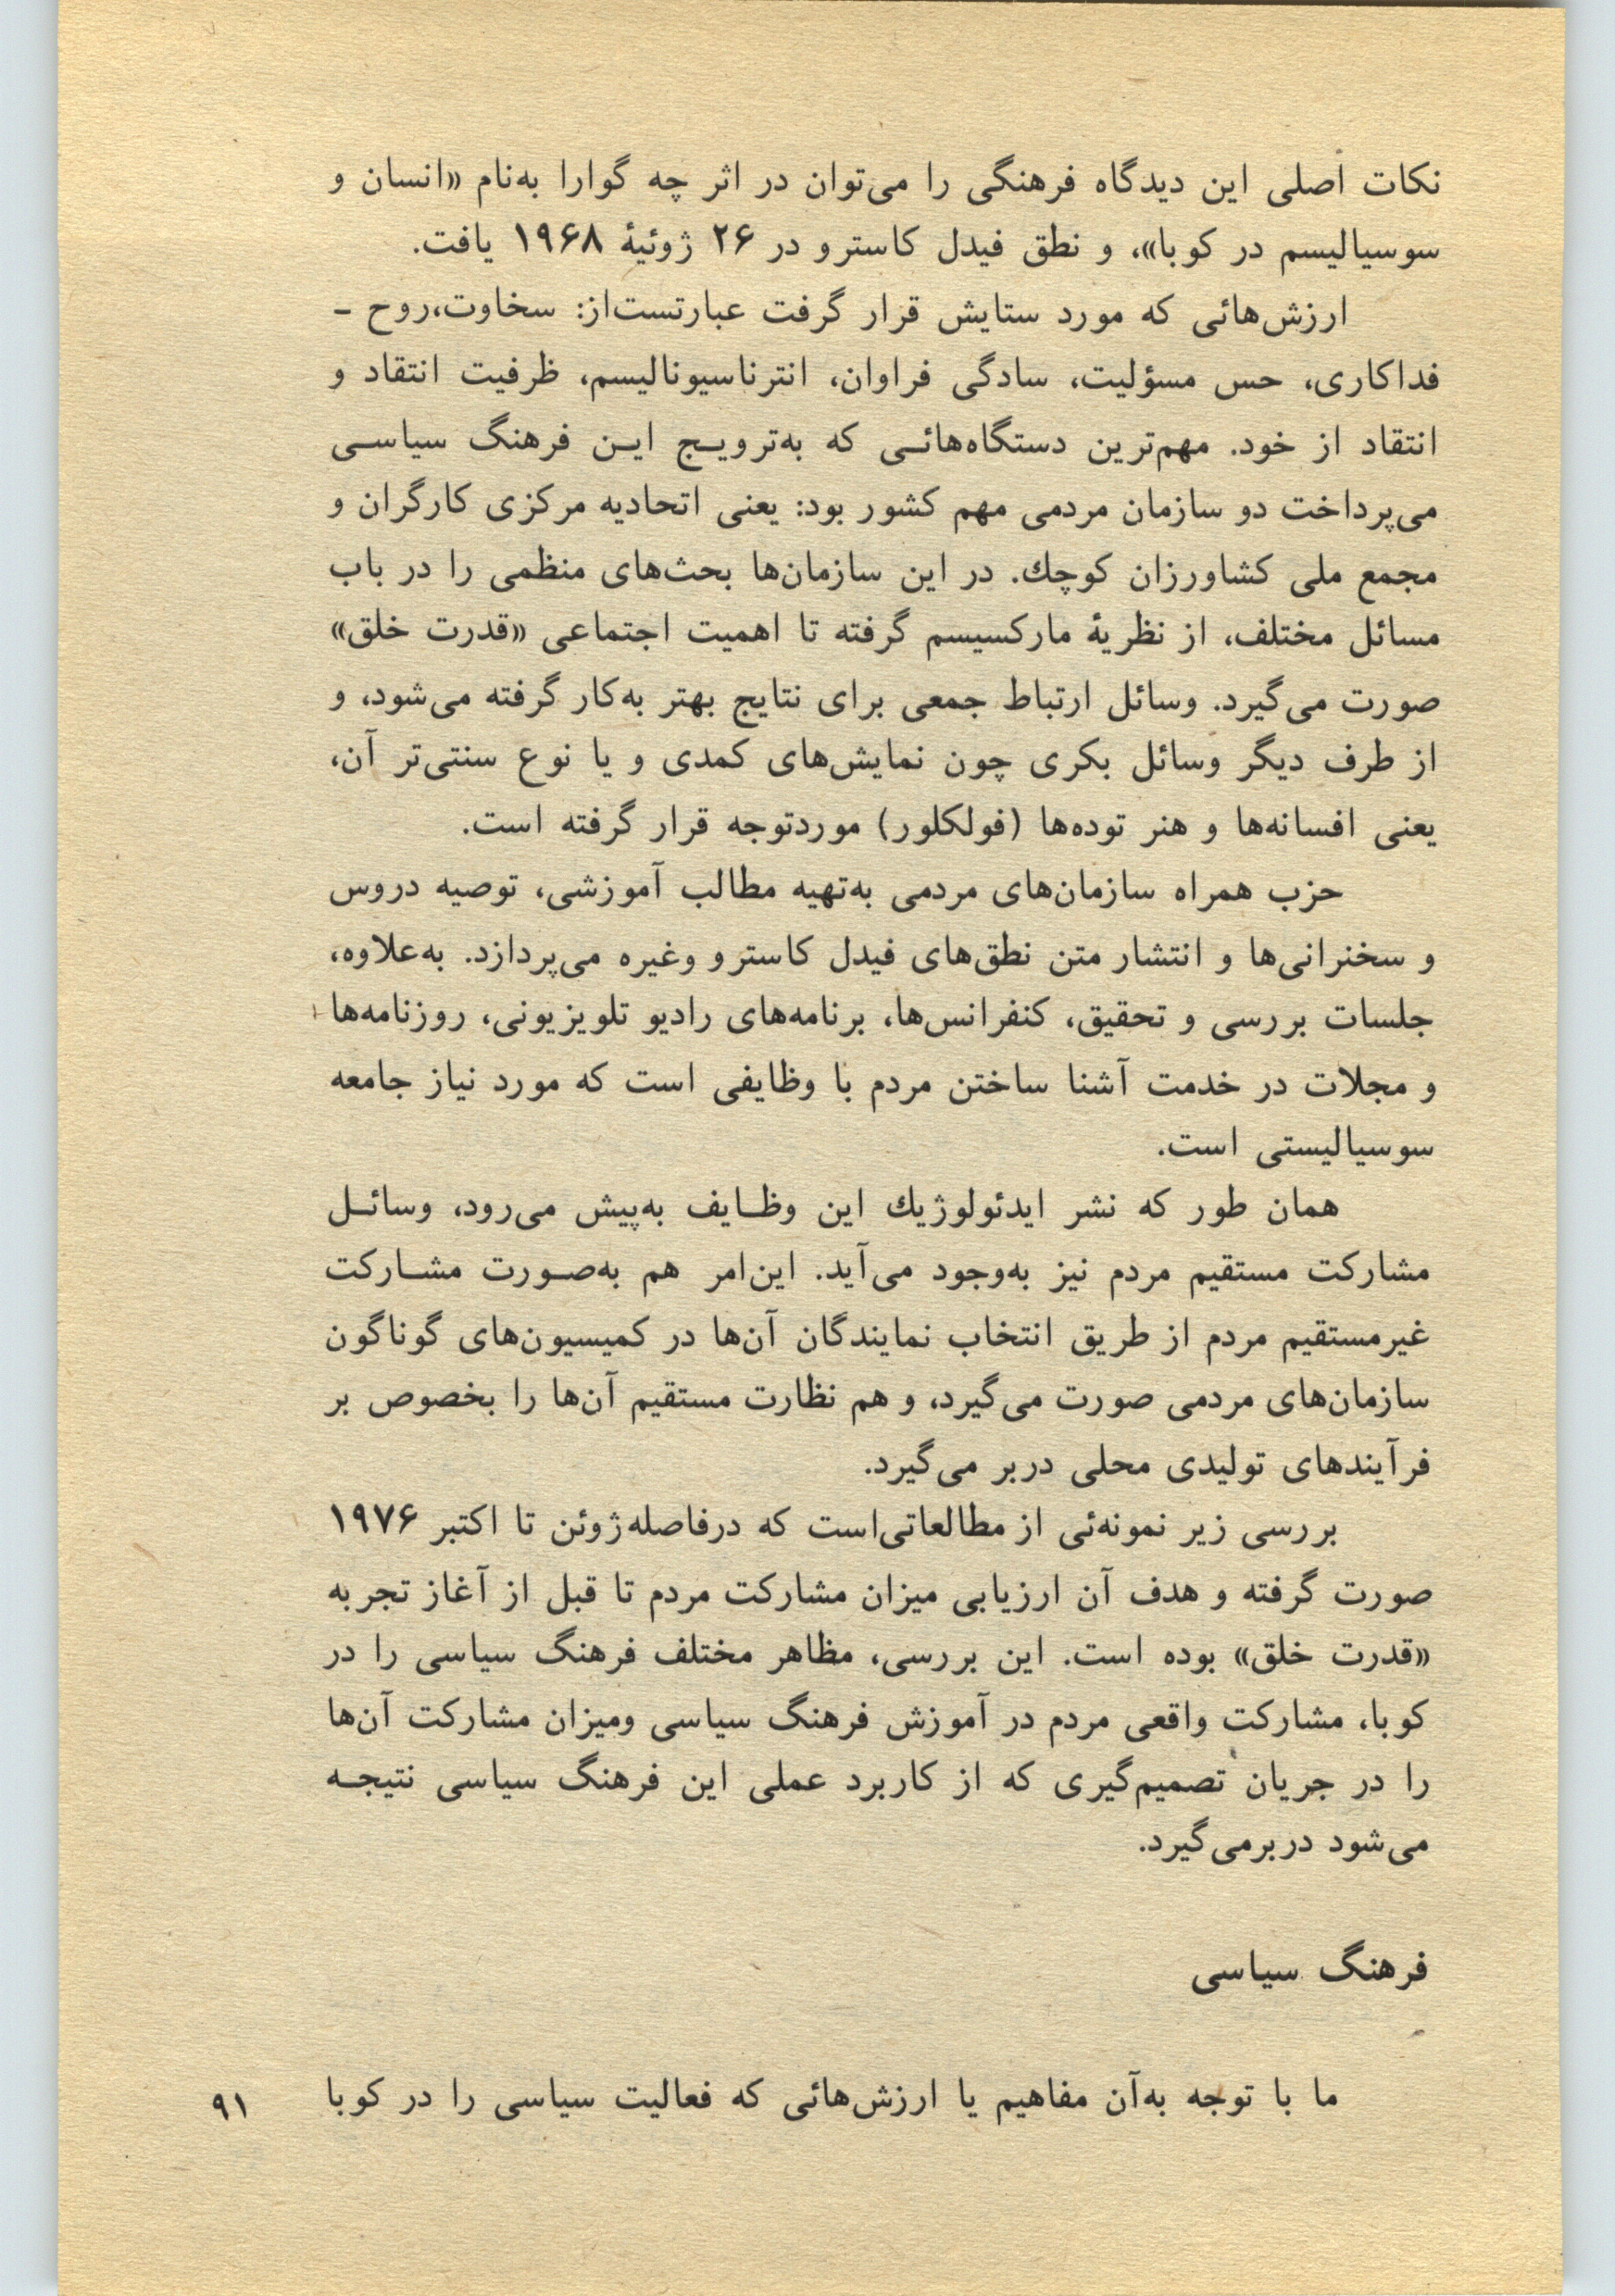 نکات اصلی این دیدگاه فرهنگی را می‌توان در اثر چه گوارا به‌نام «انسان و
سوسیالیسم در کوبا»، و نطق فیدل کاسترو در ۲۶ ژوئیهٔ ۱۹۶۸ یافت.
ارزش‌هائی که مورد ستایش قرار گرفت عبارتست‌از: سخاوت،روح -
فداکاری، حس مسؤلیت، سادگی فراوان، انترناسیونالیسم، ظرفیت انتقاد و
انتقاد از خود. مهم‌ترین دستگاه‌هائی که به‌ترویج این فرهنگ سیاسی
می‌پرداخت دو سازمان مردمی مهم کشور بود: یعنی اتحادیه مرکزی کارگران و
مجمع ملی کشاورزان کوچك. در این سازمان‌ها بحث‌های منظمی را در باب
مسائل مختلف، از نظریهٔ مارکسیسم گرفته تا اهمیت اجتماعی «قدرت خلق»
صورت می‌گیرد. وسائل ارتباط جمعی برای نتایج بهتر به‌کار گرفته می‌شود، و
از طرف دیگر وسائل بکری چون نمایش‌های کمدی و یا نوع سنتی‌تر آن،
یعنی افسانه‌ها و هنر توده‌ها (فولکلور) موردتوجه قرار گرفته است.
حزب همراه سازمان‌های مردمی به‌تهیه مطالب آموزشی، توصیه دروس
و سخنرانی‌ها و انتشار متن نطق‌های فیدل کاسترو وغیره می‌پردازد. به‌علاوه،
جلسات بررسی و تحقیق، کنفرانس‌ها، برنامه‌های رادیو تلویزیونی، روزنامه‌ها
و مجلات در خدمت آشنا ساختن مردم با وظایفی است که مورد نیاز جامعه
سوسیالیستی است.
همان طور که نشر ایدئولوژیك این وظایف به‌پیش می‌رود، وسائل
مشارکت مستقیم مردم نیز به‌وجود می‌آید. این‌امر هم به‌صورت مشارکت
غیرمستقیم مردم از طریق انتخاب نمایندگان آن‌ها در کمیسیون‌های گوناگون
سازمان‌های مردمی صورت می‌گیرد، و هم نظارت مستقیم آن‌ها را بخصوص بر
فرآیندهای تولیدی محلی دربر می‌گیرد.
بررسی زیر نمونه‌ئی از مطالعاتی‌است که درفاصله‌ژوئن تا اکتبر ۱۹۷۶
صورت گرفته و هدف آن ارزیابی میزان مشارکت مردم تا قبل از آغاز تجربه
«قدرت خلق» بوده است. این بررسی، مظاهر مختلف فرهنگ سیاسی را در
کوبا، مشارکت واقعی مردم در آموزش فرهنگ سیاسی ومیزان مشارکت آن‌ها
را در جریان تصمیم‌گیری که از کاربرد عملی این فرهنگ سیاسی نتیجه
می‌شود دربرمی‌گیرد.
فرهنگ سیاسی
ما با توجه به‌آن مفاهیم یا ارزش‌هائی که فعالیت سیاسی را در کوبا
۹۱